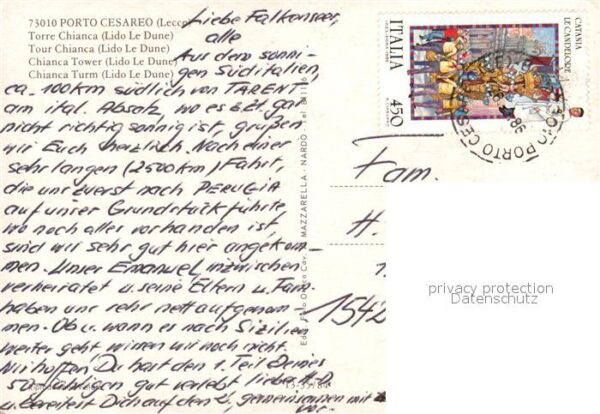 73010 PORTO CESAREO (Lecce)
Torre Chianca (Lido Le Dune)
Tour Chianca (Lido Le Dune)
Chianca Tower (Lido Le Dune)
Chianca Turm (Lido Le Dune)
Liebe Falkenseer,
alle
Aus dem sonni-
gen Süditalien,
ca. 100 km südlich von TARENT
am ital. Absatz, wo es z.Zt. gar
nicht richtig sonnig ist, grüßen
wir Euch herzlich. Nach einer
sehr langen (2500 km) Fahrt,
die uns zuerst nach PERUGIA
auf unser Grundstück führte,
wo noch alles vorhanden ist,
sind wir sehr gut hier angekom-
men. Unser Emanuel, inzwischen
verheiratet u. seine Eltern u. Fam.
haben uns sehr nett aufgenom-
men. Ob u. wann es nach Sizilien
weiter geht wissen wir noch nicht.
Wir hoffen, Du hast den 1. Teil Deines
gut verlebt liebe
u. bereitest Dich auf den gemeinsamen mit
vor.
MAZZARELLA - NARDÒ
CATANIA
LE CANDELORE
ITALIA
450
PORTO CES
86
Fam.
H.
1542
privacy protection
Datenschutz